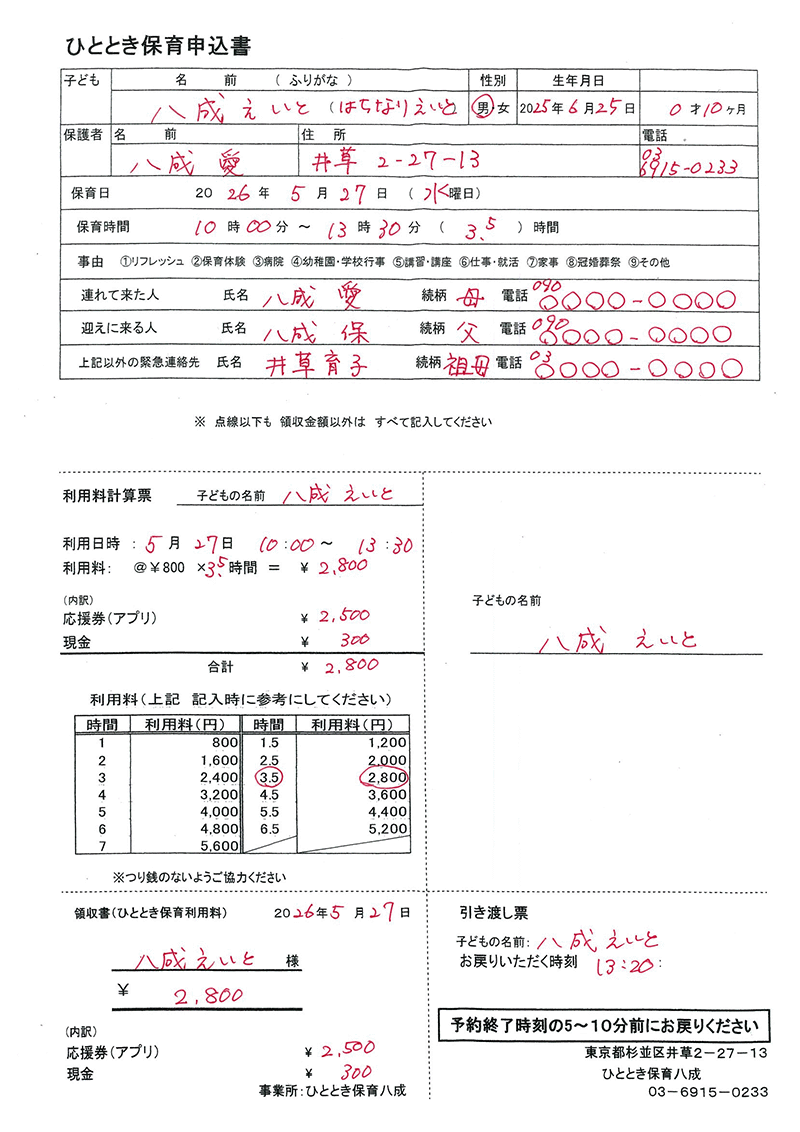 ひととき保育申込書
子ども 名 前 (ふりがな) 性別 生年月日
八成 えいと (はちなりえいと) 男 女 2025年6月25日 0才10ヶ月
保護者 名 前 住 所 電話
八成 愛 井草 2-27-13 03 6915-0233
保育日 2026年 5月 27日 (水曜日)
保育時間 10時00分 ～ 13時30分 ( 3.5 ) 時間
事由 ①リフレッシュ ②保育体験 ③病院 ④幼稚園・学校行事 ⑤講習・講座 ⑥仕事・就活 ⑦家事 ⑧冠婚葬祭 ⑨その他
連れて来た人 氏名 八成 愛 続柄 母 電話 090 ○○○○-○○○○
迎えに来る人 氏名 八成 保 続柄 父 電話 090 ○○○○-○○○○
上記以外の緊急連絡先 氏名 井草育子 続柄 祖母 電話 03 ○○○○-○○○○
※ 点線以下も 領収金額以外は すべて記入してください
利用料計算票 子どもの名前 八成 えいと
利用日時 : 5月 27日 10:00～ 13:30
利用料: @￥800 ×3.5時間 = ￥ 2,800
(内訳)
応援券(アプリ) ￥ 2,500
現金 ￥ 300
合計 ￥ 2,800
利用料(上記 記入時に参考にしてください)
時間 利用料(円) 時間 利用料(円)
1 800 1.5 1,200
2 1,600 2.5 2,000
3 2,400 3.5 2,800
4 3,200 4.5 3,600
5 4,000 5.5 4,400
6 4,800 6.5 5,200
7 5,600
※つり銭のないようご協力ください
子どもの名前
八成 えいと
領収書(ひととき保育利用料) 2026年5月27日
八成えいと 様
￥ 2,800
(内訳)
応援券(アプリ) ￥ 2,500
現金 ￥ 300
事業所:ひととき保育八成
引き渡し票
子どもの名前: 八成 えいと
お戻りいただく時刻 13:20:
予約終了時刻の5～10分前にお戻りください
東京都杉並区井草2-27-13
ひととき保育八成
03-6915-0233